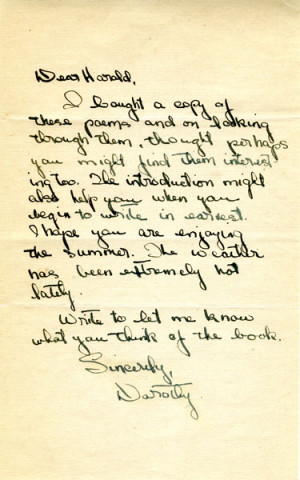 Dear Harold,
I bought a copy of
these poems and on looking
through them, thought perhaps
you might find them interest
ing too. The introduction might
also help you when you
begin to write in earnest.
I hope you are enjoying
the summer. The weather
has been extremely hot
lately.
Write to let me know
what you think of the book.
Sincerely,
Dorothy